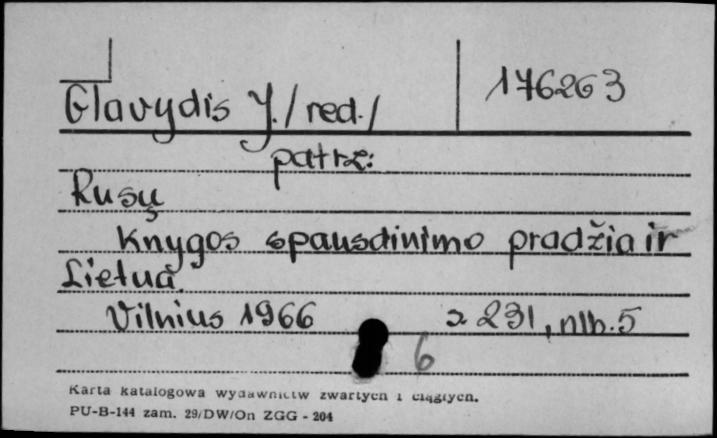 176263
Glavydis J. /red./
patrz:
Rusų
Knygos spausdinimo pradžia ir
Lietuva
Vilnius 1966 s 231, nlb. 5
6
Karta katalogowa wydawnictw zwartych i ciągłych.
PU-B-144 zam. 29/DW/On ZGG - 204